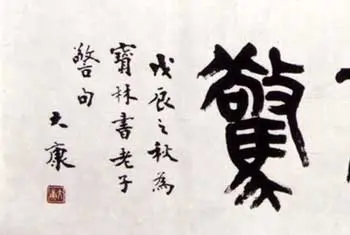 驚
戊辰之秋為
寶林書老子
警句
大康